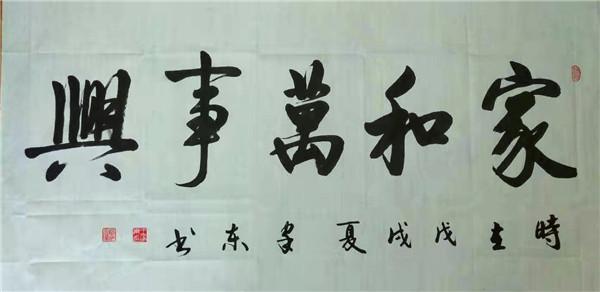 家和萬事興
時在戊戌夏安东书